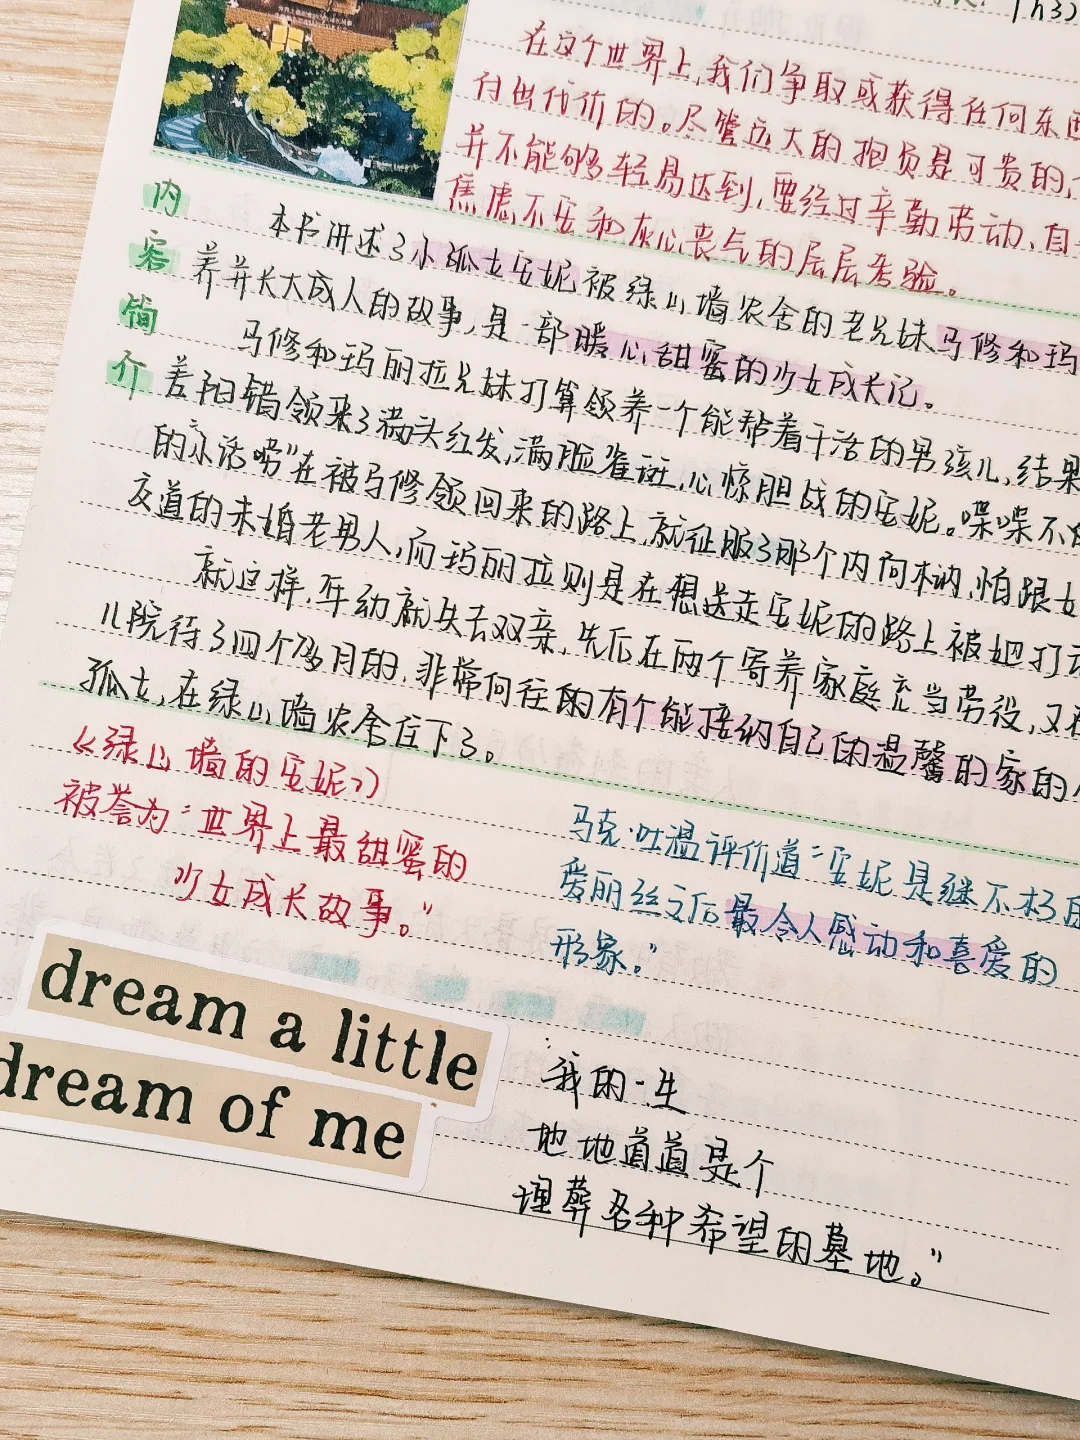 (h3)
在这个世界上,我们争取或获得任何东西
付出代价的。尽管远大的抱负是可贵的,
并不能够轻易达到,要经过辛勤劳动、自
焦虑不安和灰心丧气的层层考验。
内容简介
本书讲述了小孤女安妮被绿山墙农舍的老兄妹马修和玛
养并长大成人的故事,是一部暖心甜蜜的少女成长记。
马修和玛丽拉兄妹打算领养一个能帮着干活的男孩儿,结果
差阳错领来了满头红发,满脸雀斑,心惊胆战的安妮。喋喋不
的"小话唠"在被马修领回来的路上,就征服了那个内向木讷,怕跟女
交道的未婚老男人,而玛丽拉则是在想送走安妮的路上被她打动
就这样,年幼就失去双亲,先后在两个寄养家庭充当劳役,又在
儿院待了四个多月的,非常向往的有个能接纳自己的温馨的家的
孤女,在绿山墙农舍住下了。
《绿山墙的安妮》
被誉为"世界上最甜蜜的
少女成长故事。"
马克·吐温评价道:"安妮是继不朽的
爱丽丝之后最令人感动和喜爱的
形象。"
dream a little
dream of me
"我的一生
地地道道是个
埋葬各种希望的墓地。"